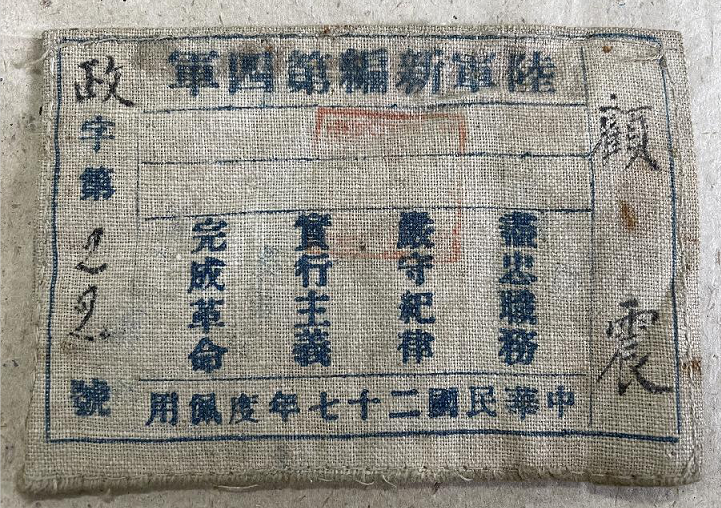 陸軍新編第四軍
顧震
盡忠職務
嚴守紀律
實行主義
完成革命
政字第22號
中華民國二十七年度佩用